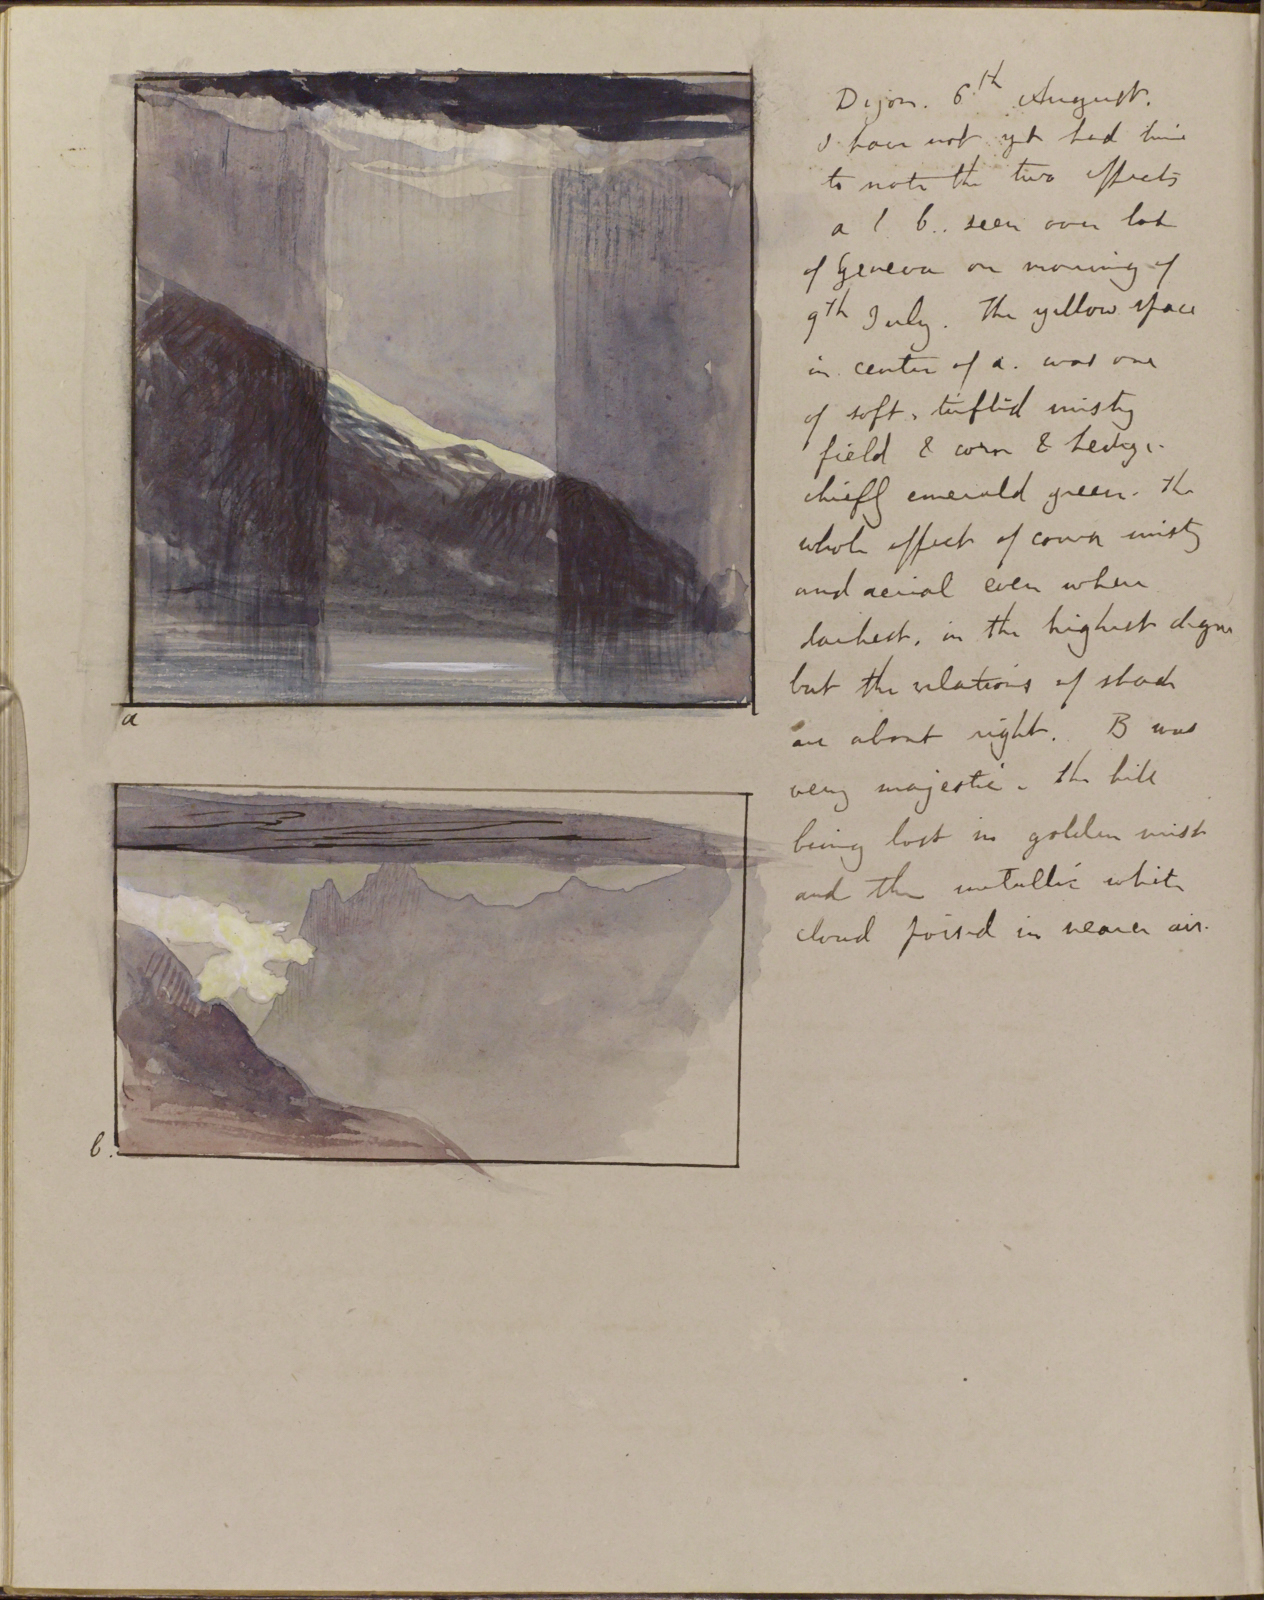 Dijon. 6th August.
I have not yet had time
to note the two effects
a & b.. seen over lake
of Geneva on morning of
9th July. The yellow space
in center of a. was one
of soft, tufted misty
field & corn & hedge.
chiefly emerald green. the
whole effect of course misty
and aerial even when
darkest, in the highest degree
but the relations of shade
are about right. B was
very majestic. the hill
being lost in golden mist
and the metallic white
cloud poised in nearer air.
a
b.